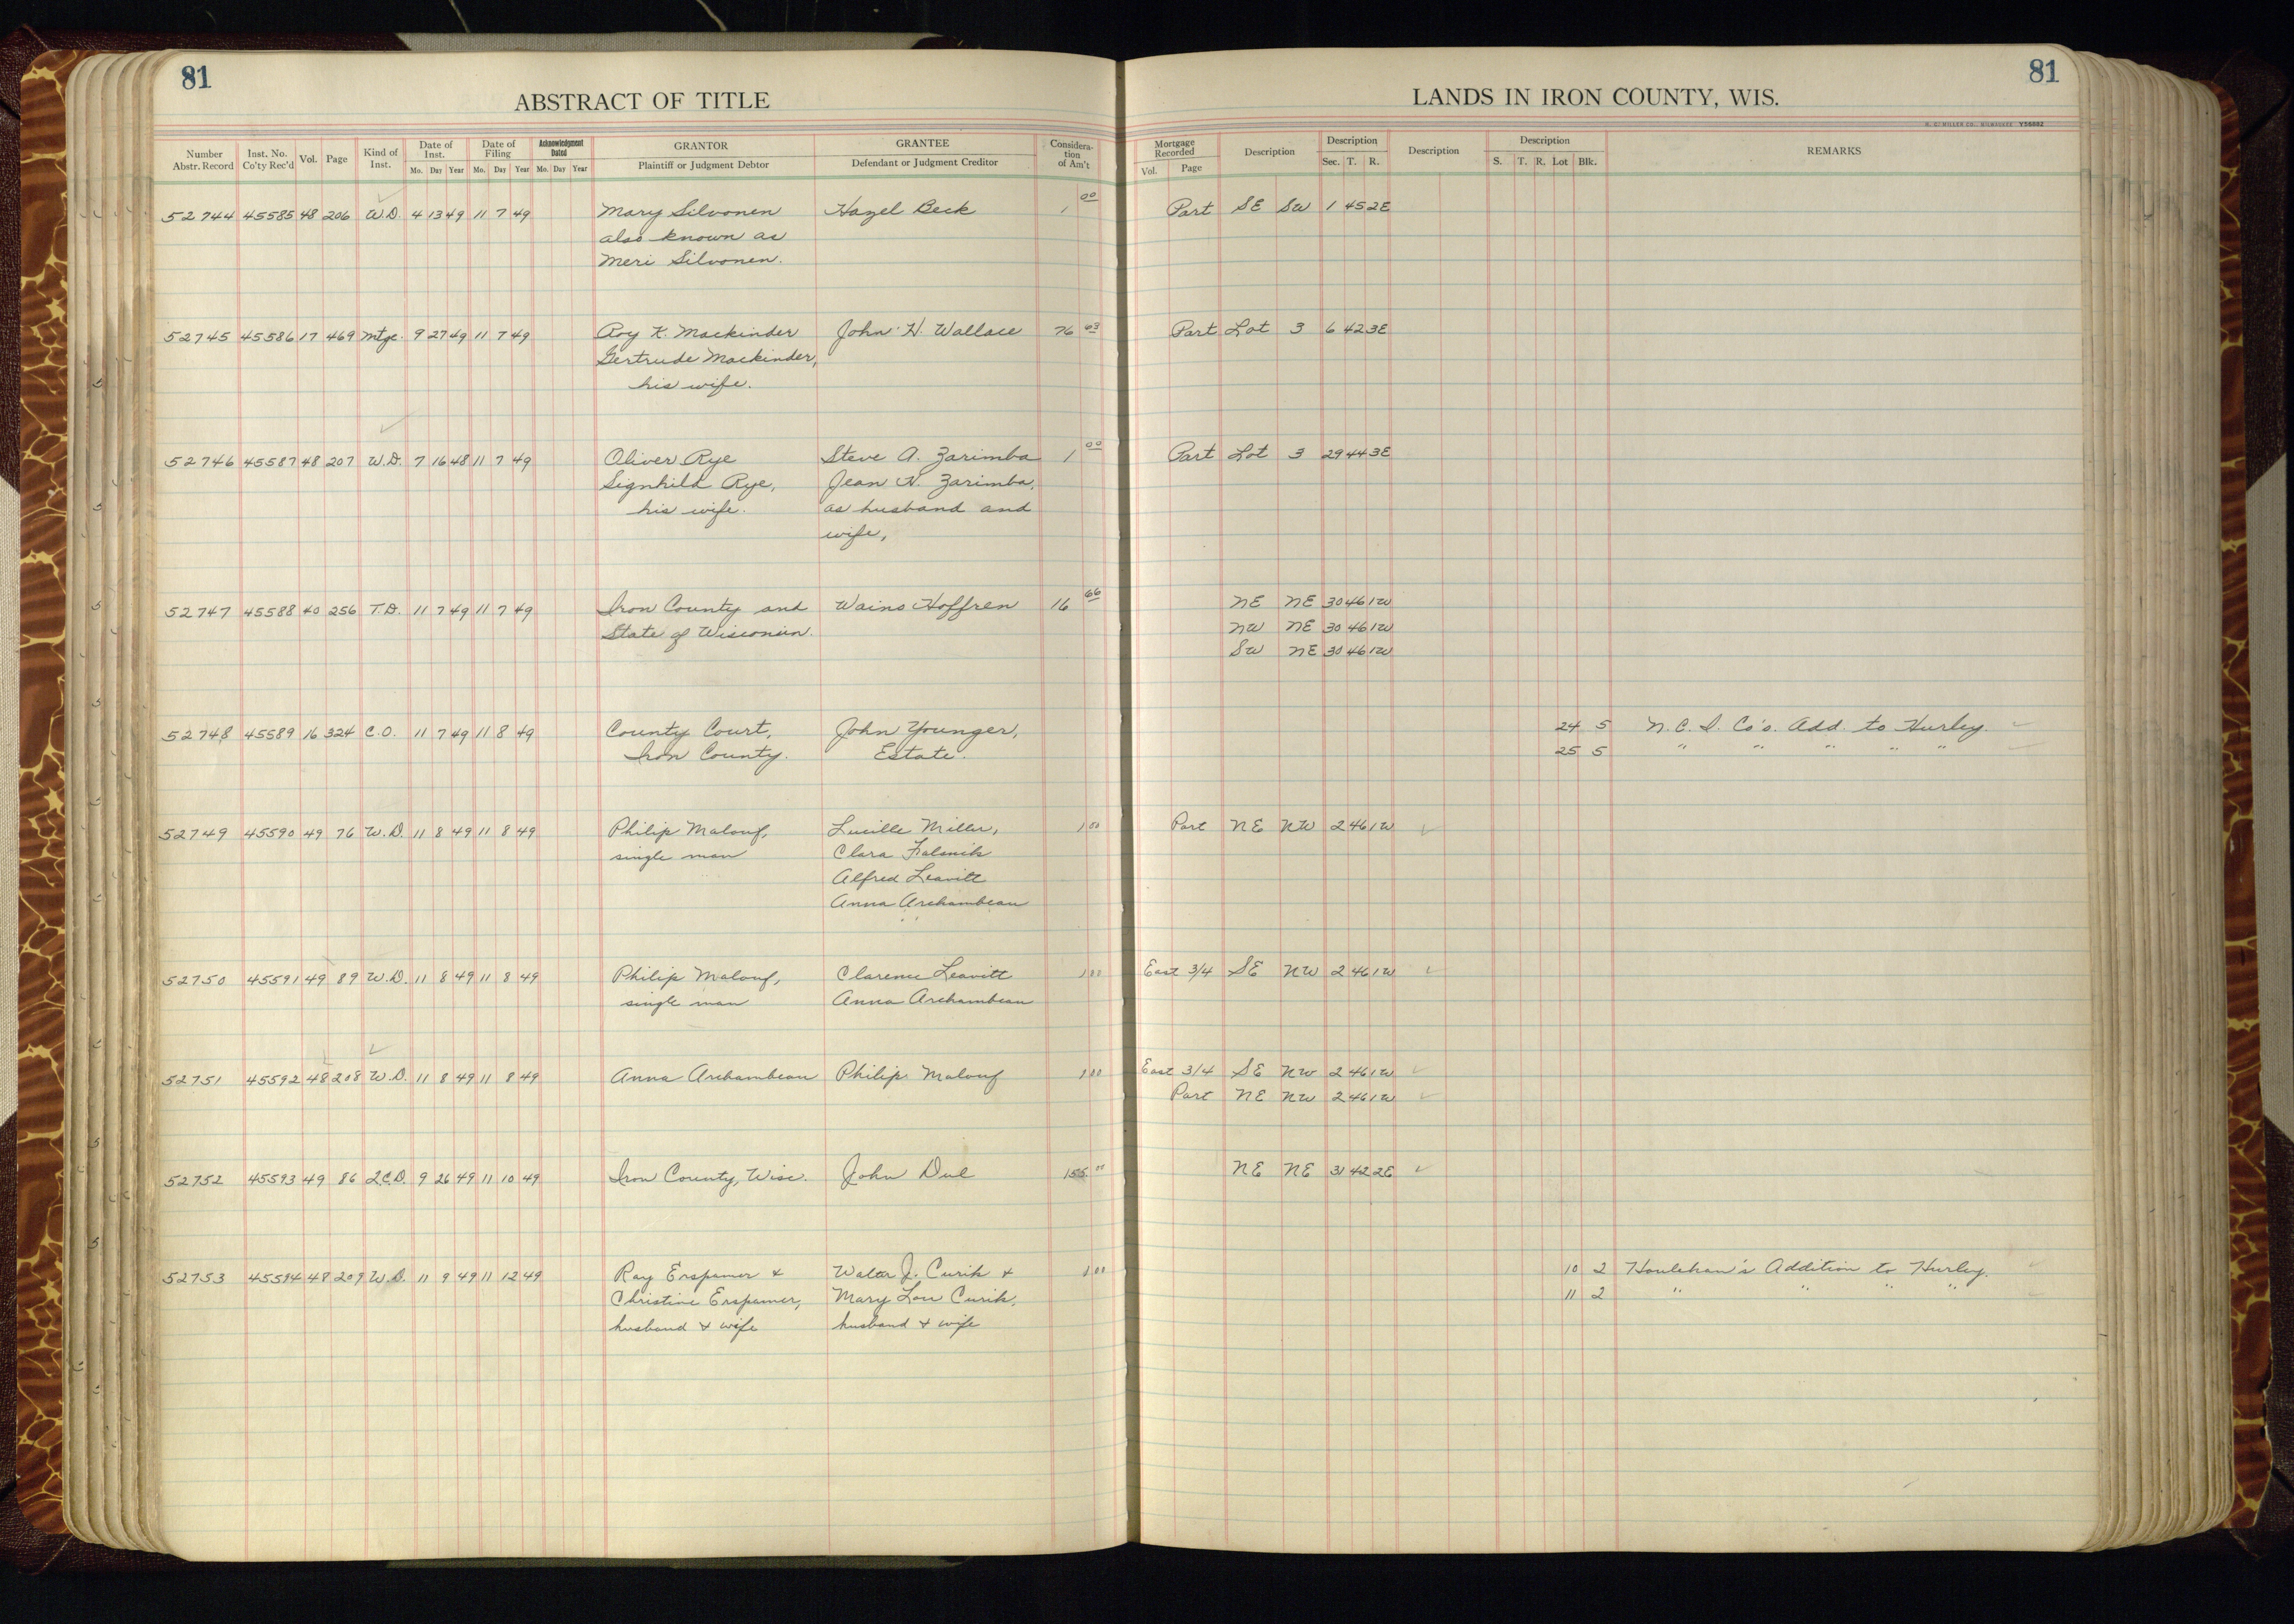 81
ABSTRACT OF TITLE
LANDS IN IRON COUNTY, WIS.
81
H. C. MILLER CO., MILWAUKEE Y56882
Number Abstr. Record Inst. No. Co'ty Rec'd Vol. Page Kind of Inst. Date of Inst. Mo. Day Year Date of Filing Mo. Day Year Acknowledgment Dated Mo. Day Year GRANTOR Plaintiff or Judgment Debtor GRANTEE Defendant or Judgment Creditor Consideration of Am't Mortgage Recorded Vol. Page Description Description Sec. T. R. Description Description S. T. R. Lot Blk. REMARKS
52744 45585 48 206 W.D. 4 13 49 11 7 49 Mary Silvonen Hazel Beck 1 00 Part SE SW 1 45 2E
also known as
Meri Silvonen.
52745 45586 17 469 Mtge. 9 27 49 11 7 49 Roy K. Mackinder John H. Wallace 76 03 Part Lot 3 6 42 3E
Gertrude Mackinder,
his wife.
52746 45587 48 207 W.D. 7 16 48 11 7 49 Oliver Rye Steve A. Zarimba 1 00 Part Lot 3 29 44 3E
Signhild Rye, Jean N. Zarimba,
his wife. as husband and
wife,
52747 45588 40 256 T.D. 11 7 49 11 7 49 Iron County and Waino Hoffren 16 66 NE NE 30 46 1W
State of Wisconsin. NW NE 30 46 1W
SW NE 30 46 1W
52748 45589 16 324 C.O. 11 7 49 11 8 49 County Court, John Younger, 24 5 N. C. I. Co's. Add. to Hurley.
Iron County. Estate. 25 5 " " " " "
52749 45590 49 76 W.D. 11 8 49 11 8 49 Philip Malouf, Lucille Miller, 1 00 Part NE NW 2 46 1W
single man Clara
Alfred Leavitt
Anna Archambeau
52750 45591 49 89 W.D. 11 8 49 11 8 49 Philip Malouf, Clarence Leavitt 1 00 East 3/4 SE NW 2 46 1W
single man Anna Archambeau
52751 45592 48 208 W.D. 11 8 49 11 8 49 Anna Archambeau Philip Malouf 1 00 East 3/4 SE NW 2 46 1W
Part NE NW 2 46 1W
52752 45593 49 86 Q.C.D. 9 26 49 11 10 49 Iron County, Wisc. John Dul 155 00 NE NE 31 42 2E
52753 45594 48 209 W.D. 11 9 49 11 12 49 Ray Erspamer & Walter J. Curik & 1 00 10 2 Houlehan's Addition to Hurley.
Christine Erspamer, Mary Lou Curik, 11 2 " " " "
husband & wife husband & wife